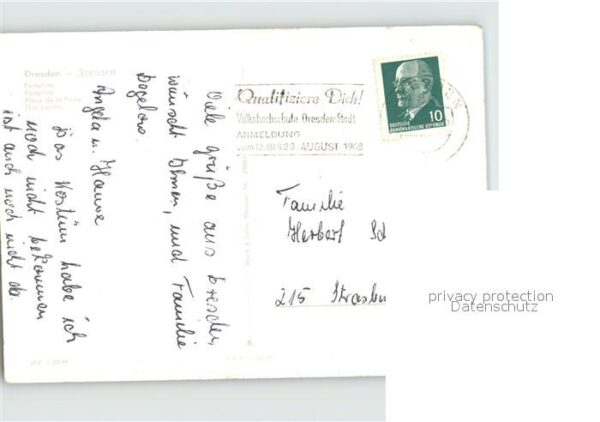 Dresden –
Postplatz
Qualifiziere Dich!
Volkshochschule Dresden-Stadt
ANMELDUNG
vom 12. BIS 23. AUGUST 1968
10
DEUTSCHE
DEMOKRATISCHE REPUBLIK
Viele grüße aus Dresden,
wünscht Ihnen, und Familie
Degelow.
Angela u. Hanne
jas Kostüm habe ich
noch nicht bekommen
ist auch noch nicht da.
Familie
Herbert Sd
215 Strasbu
privacy protection
Datenschutz